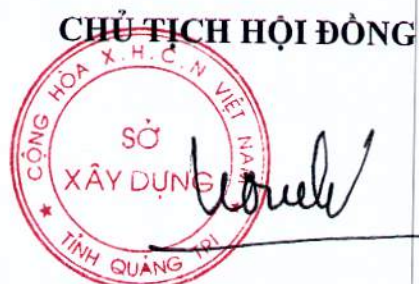 CHỦ TỊCH HỘI ĐỒNG
CỘNG HÒA X.H.C.N VIỆT NAM
SỞ
XÂY DỰNG
TỈNH QUẢNG TRỊ